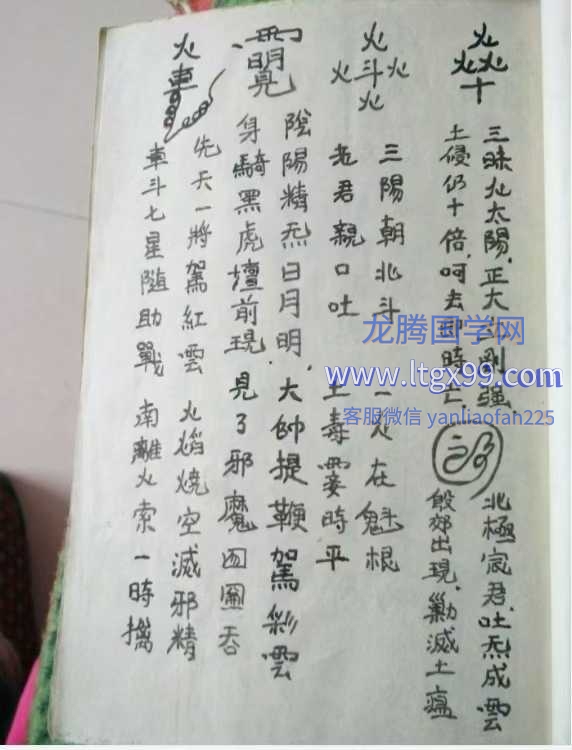 三昧火太陽，正大剛強
土侵仍十倍，呵去即時亡
北極宸君，吐炁成雲
殷郊出現，勦滅土瘟
火斗火
火火
三陽朝北斗 一火在魁根
老君親口吐 土毒霎時平
陰陽精炁日月明，大帥提鞭駕彩雲
身騎黑虎壇前現，見了邪魔囫圇吞
火車
先天一將駕紅雲 火焰燒空滅邪精
車斗七星隨助戰 南離火索一時擒
龙腾国学网
www.ltgx99.com
客服微信 yanliaofan225